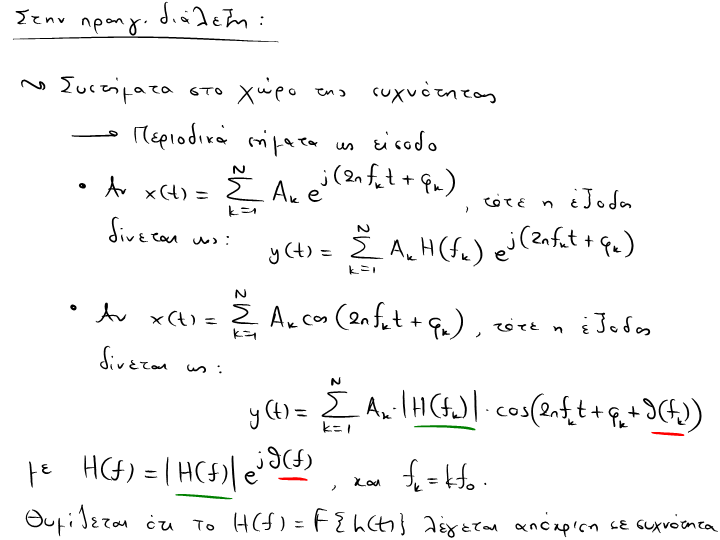 Στην προηγ. διάλεξη:
~> Συστήματα στο χώρο της συχνότητας
→ Περιοδικά σήματα ως είσοδο
• Αν x(t) = Σ_{k=1}^{N} A_k e^{j(2πf_k t + φ_k)}, τότε η έξοδος
δίνεται ως: y(t) = Σ_{k=1}^{N} A_k H(f_k) e^{j(2πf_k t + φ_k)}
• Αν x(t) = Σ_{k=1}^{N} A_k cos(2πf_k t + φ_k), τότε η έξοδος
δίνεται ως:
y(t) = Σ_{k=1}^{N} A_k · |H(f_k)| · cos(2πf_k t + φ_k + θ(f_k))
με H(f) = |H(f)| e^{jθ(f)}, και f_k = kf_0.
Θυμίζεται ότι το H(f) = F{h(t)} λέγεται απόκριση σε συχνότητα